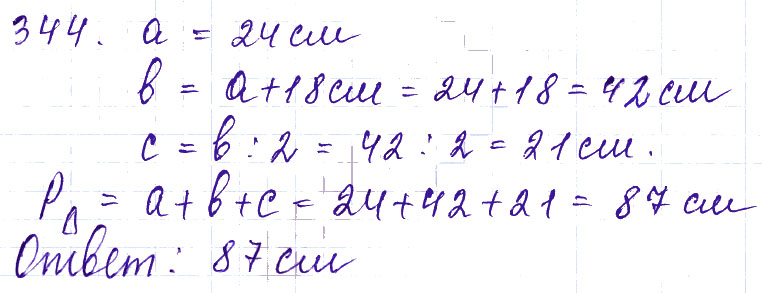 344. a = 24 см
в = a + 18 см = 24 + 18 = 42 см
c = в : 2 = 42 : 2 = 21 см.
P△ = a + в + c = 24 + 42 + 21 = 87 см
Ответ: 87 см